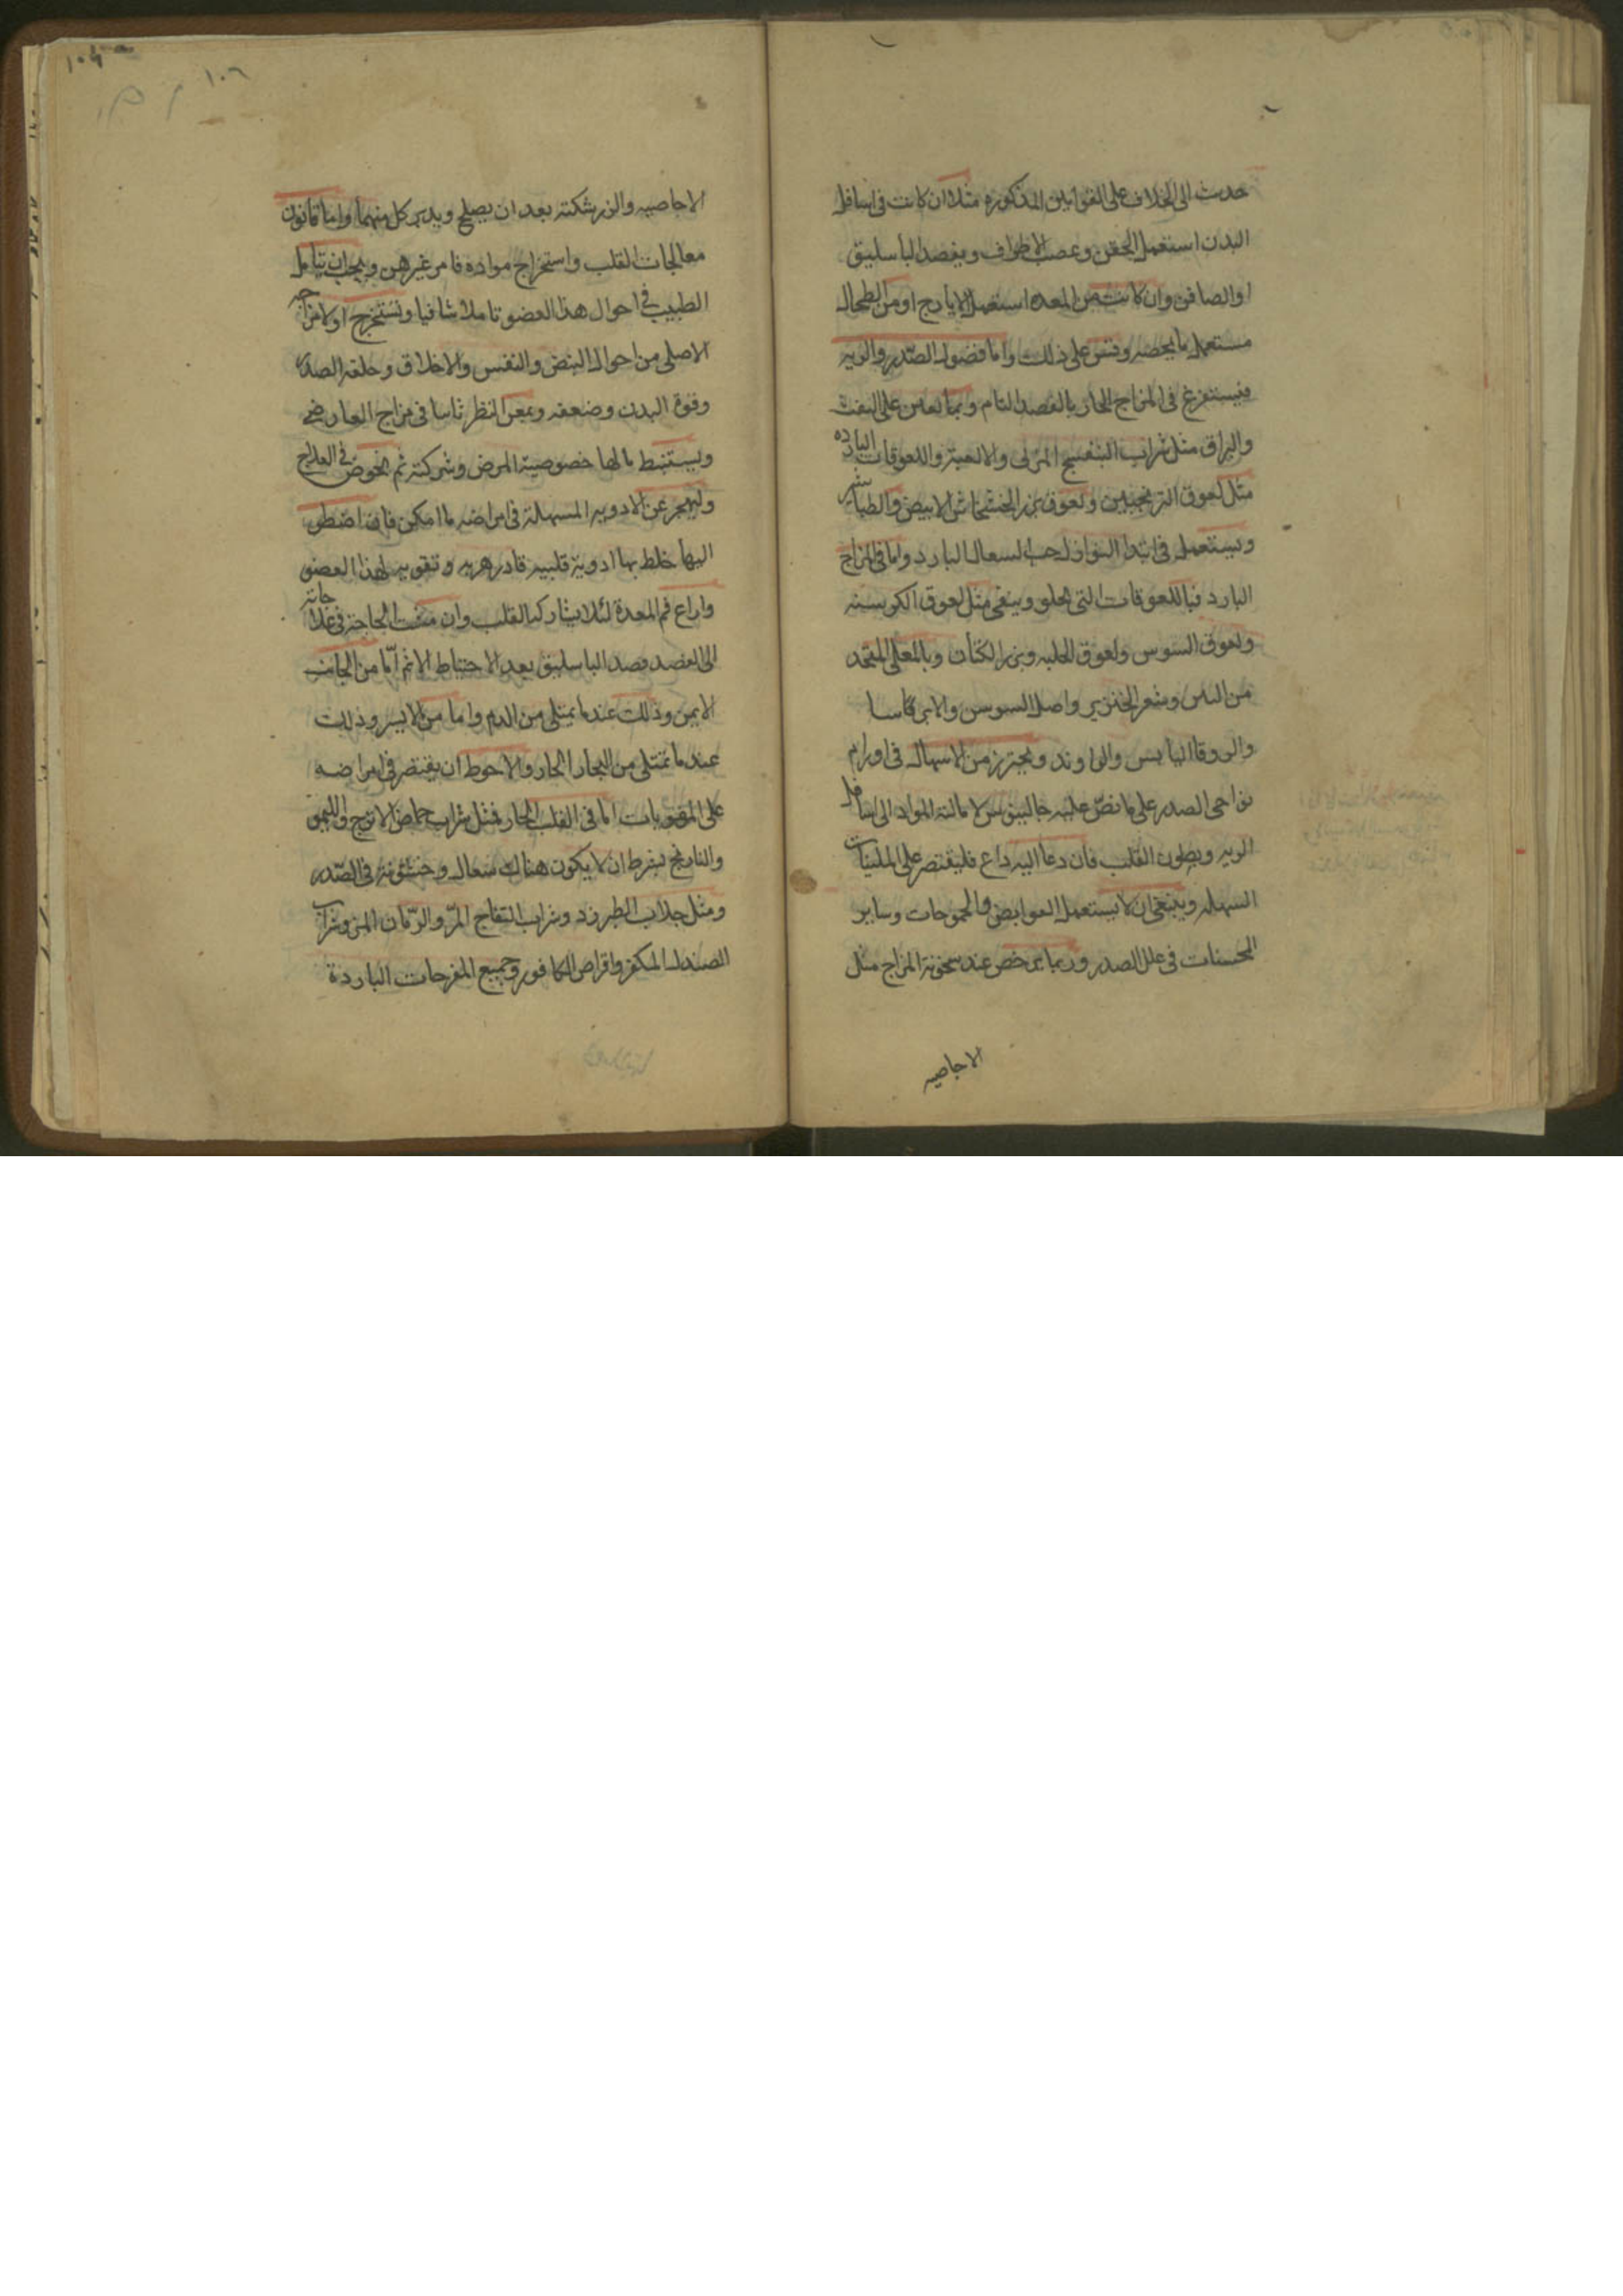 حدث الى الخلاف على القوانين المذكوره مثلا ان كانت فى اسافل
البدن استعمل الحقن وعصب الاطراف ويفصد الباسليق
او الصافن وان كانت من المعده استعمل الايارج او من الطحال
مستعمل ما يخصه وقس على ذلك واما فضول الصدر والريه
فيستفرغ فى المزاج الحار بالفصد التام وبما يعين على النفث
والبزاق مثل شراب البنفسج المربى والالعبة واللعوقات الباردة
مثل لعوق الترنجبين ولعوق بزر الخشخاش الابيض والطباشير
ويستعمل فى ابتدا النوازل حب السعال البارد واما فى المزاج
البارد فباللعوقات التى تجلو وينقى مثل لعوق الكرسنه
ولعوق السوس ولعوق الحلبه وبزر الكتان وبالمغلى المتخذ
من التين وشعر الخنزير واصل السوسن والايرسا
والزوفا اليابس والراوند ويحترز من الاسهال فى اورام
نواحى الصدر على ما نص عليه جالينوس لامالتة المواد الى اسافل
الريه وبطون القلب فان دعا اليه داع فليقتصر على الملينات
السهله وينبغى ان لا يستعمل القوابض والحموضات وساير
المخشنات فى علل الصدر وربما يرخص عند سخونة المزاج مثل
الاجاصيه
١٠٦
الاجاصيه والزرشكية بعد ان يصلح ويدبر كل منهما واما قانون
معالجات القلب واستخراج مواده فامر غير هين ويجب ان يتامل
الطبيب فى احوال هذا العضو تاملا شافيا ويستخرج اولا مزاجه
الاصلى من احوال النبض والنفس والاخلاق وخلقة الصدر
وقوة البدن وضعفه ويمعن النظر ثانيا فى مزاج العارضى
ويستنبط مالها خصوصية المرض وشركته ثم يخوض فى العلاج
وليهجر عن الادويه المسهلة فى امراضه ما امكن فان اضطر
اليها خلط بها ادوية قلبيه فادزهريه وتقويه لهذا العضو
وراع فم المعدة لئلا يشارك القلب وان مست الحاجة فى علاجاته
الى الفصد فصد الباسليق بعد الاحتياط الاتم اما من الجانب
الايمن وذلك عندما يمتلى من الدم واما من الايسر وذلك
عند ما تمتلى من البخار الحار والاحوط ان يقتصر فى امراضه
على المقويات اما فى القلب الحار فمثل شراب حماض الاترج والليمو
والنارنج بشرط ان لا يكون هناك سعال وخشونة فى الصدر
ومثل جلاب الطبرزد وشراب التفاح المز والرمان المز وشراب
الصندل المكفر واقراص الكافور وجميع المفرحات الباردة